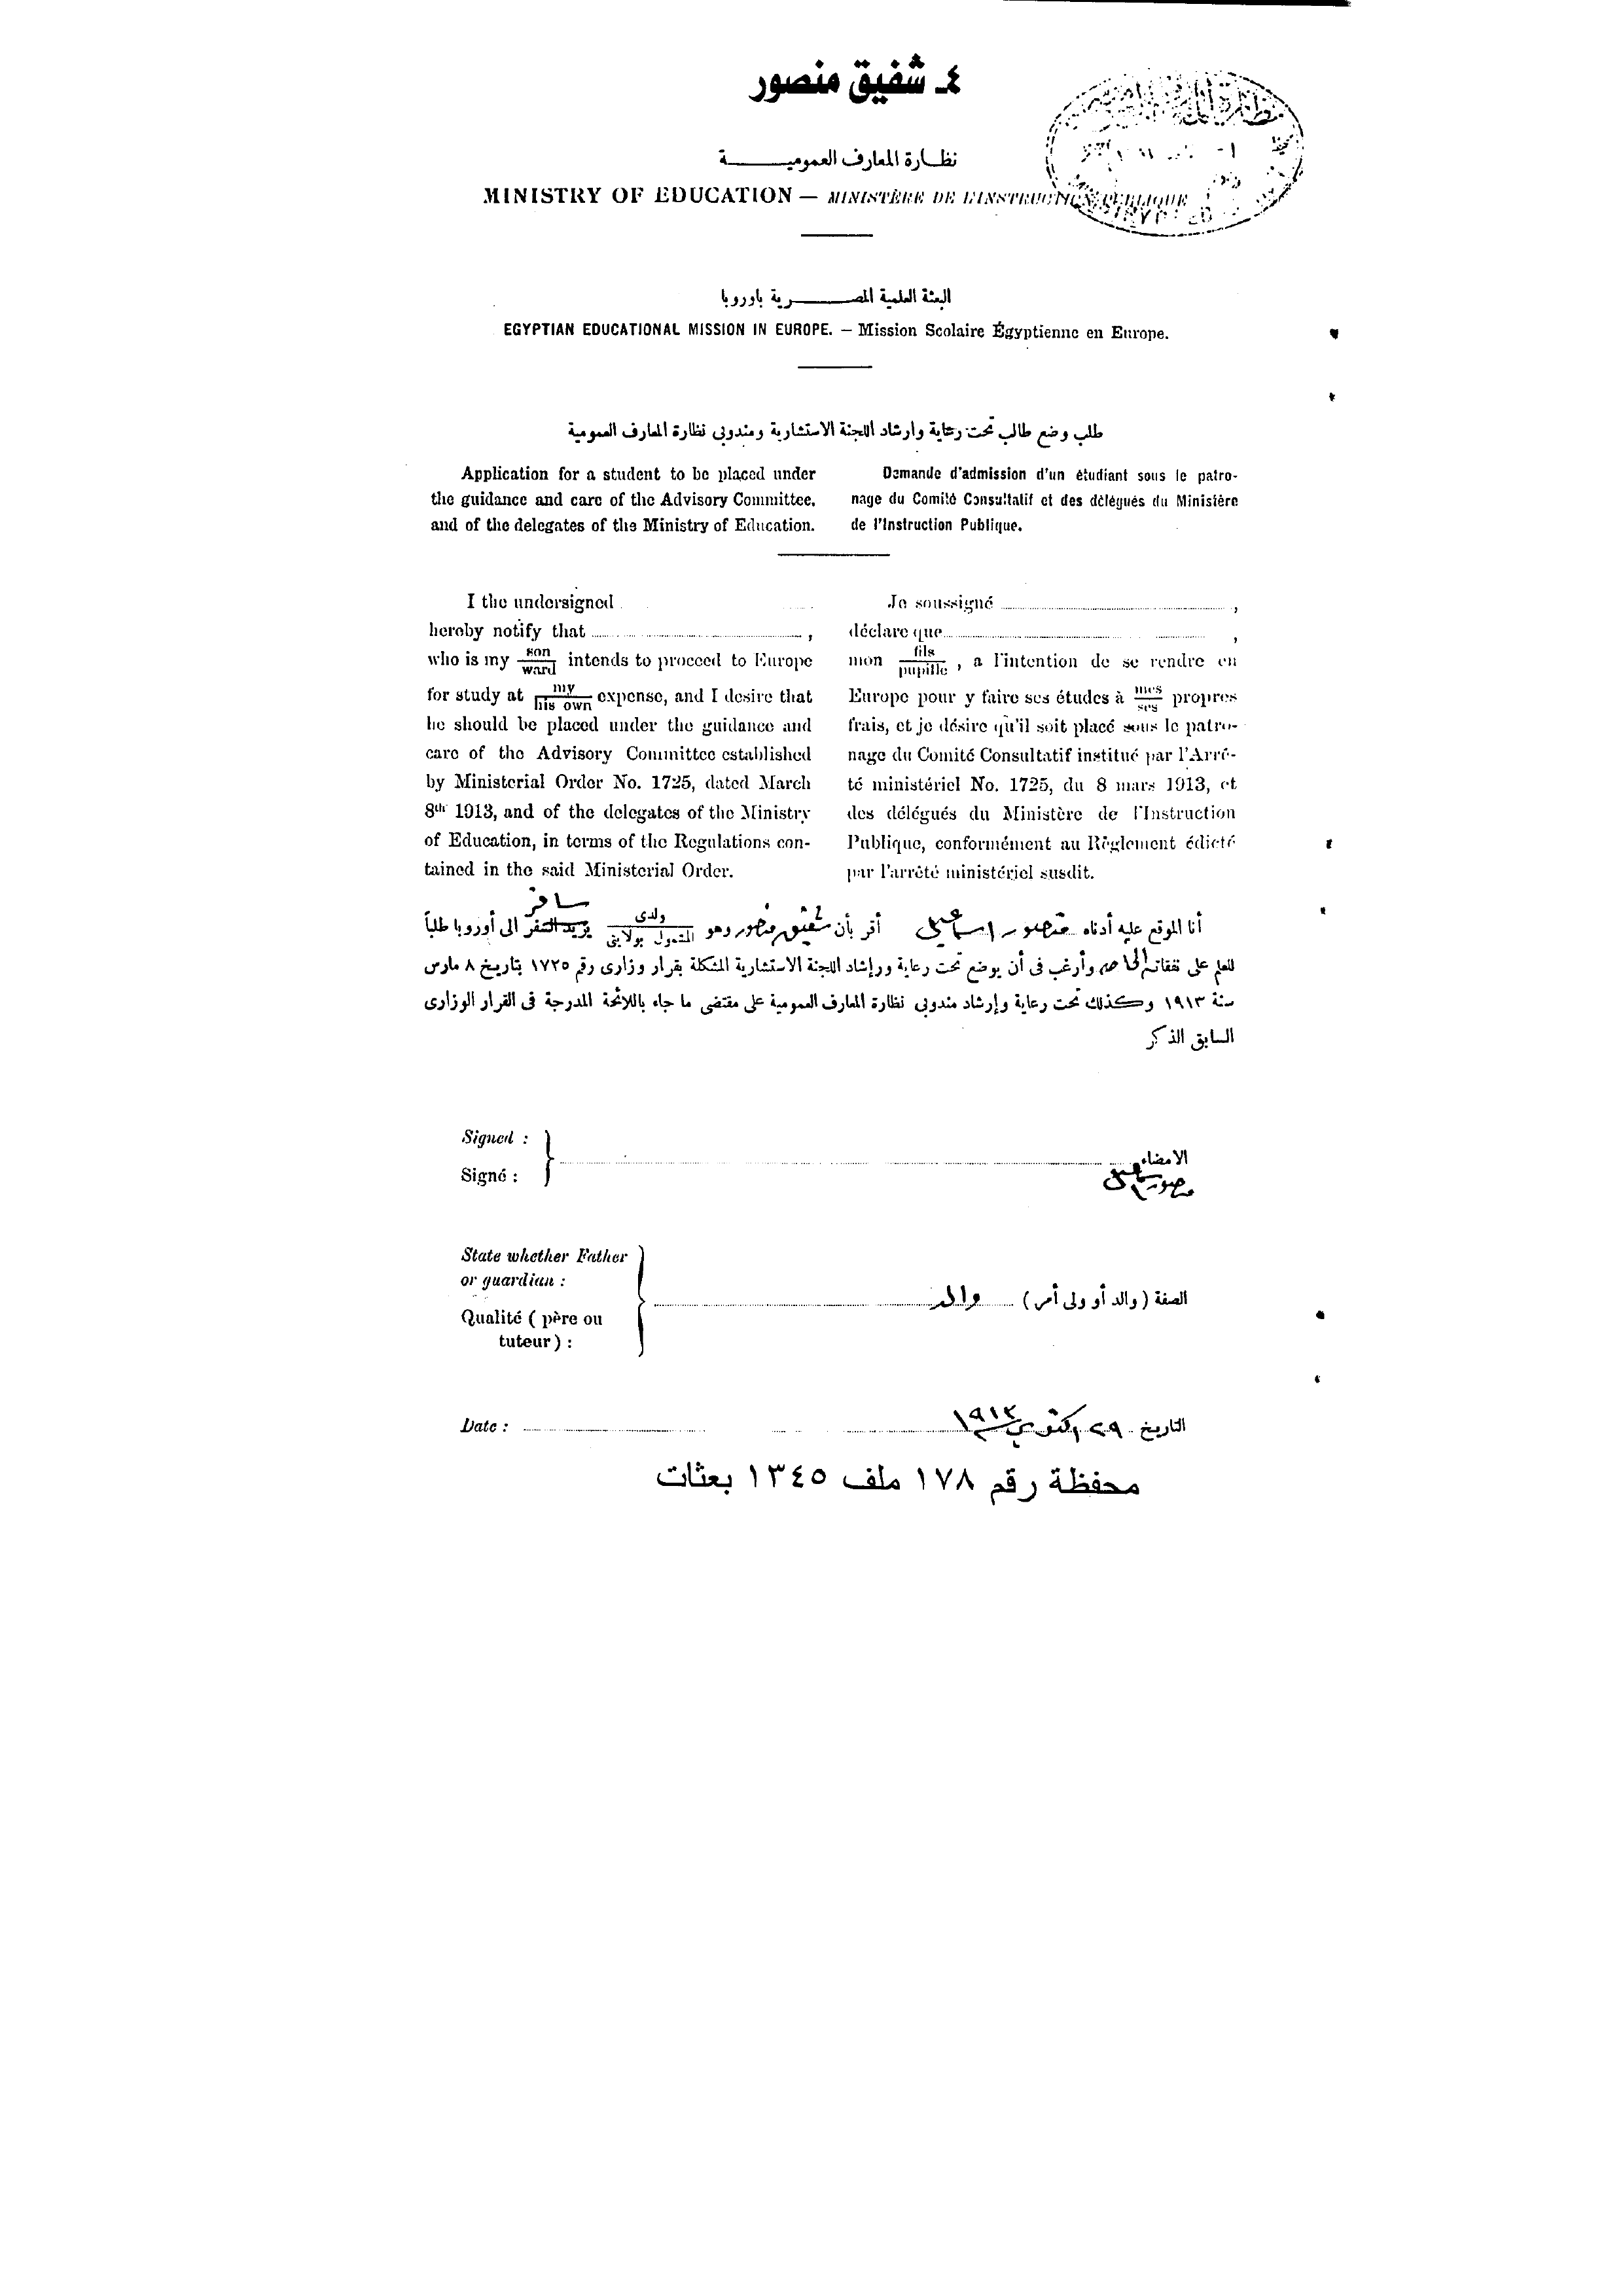 ٤ـ شفيق منصور
نظارة المعارف العمومية
MINISTRY OF EDUCATION — MINISTÈRE DE L'INSTRUCTION PUBLIQUE
البعثة العلمية المصرية باوروبا
EGYPTIAN EDUCATIONAL MISSION IN EUROPE. — Mission Scolaire Égyptienne en Europe.
طلب وضع طالب تحت رعاية وارشاد اللجنة الاستشارية ومندوبى نظارة المعارف العمومية
Application for a student to be placed under
the guidance and care of the Advisory Committee.
and of the delegates of the Ministry of Education.
Demande d'admission d'un étudiant sous le patro-
nage du Comité Consultatif et des délégués du Ministère
de l'Instruction Publique.
I the undersigned
hereby notify that ,
who is my son/ward intends to proceed to Europe
for study at my/his own expense, and I desire that
he should be placed under the guidance and
care of the Advisory Committee established
by Ministerial Order No. 1725, dated March
8th 1913, and of the delegates of the Ministry
of Education, in terms of the Regulations con-
tained in the said Ministerial Order.
Je soussigné ,
déclare que ,
mon fils/pupille , a l'intention de se rendre en
Europe pour y faire ses études à mes/ses propres
frais, et je désire qu'il soit placé sous le patro-
nage du Comité Consultatif institué par l'Arrê-
té ministériel No. 1725, du 8 mars 1913, et
des délégués du Ministère de l'Instruction
Publique, conformément au Règlement édicté
par l'arrêté ministériel susdit.
سافر
أنا الموقع عليه أدناه منصور اسماعيل أقر بأن شفيق منصور وهو ولدى/المشمول بولايتى يريد السفر الى أوروبا طلباً
للعلم على نفقاته الخاصه وأرغب فى أن يوضع تحت رعاية ورإشاد اللجنة الاستشارية المشكلة بقرار وزارى رقم ١٧٢٥ بتاريخ ٨ مارس
سنة ١٩١٣ وكذلك تحت رعاية وإرشاد مندوبى نظارة المعارف العمومية على مقتضى ما جاء باللائحة المدرجة فى القرار الوزارى
السابق الذكر
Signed :
Signé :
الامضاء
منصور اسماعيل
State whether Father
or guardian :
Qualité ( père ou
tuteur ) :
الصفة ( والد أو ولى أمر ) والد
Date :
التاريخ ٢٩ اكتوبر ١٩١٣
محفظة رقم ١٧٨ ملف ١٣٤٥ بعثات